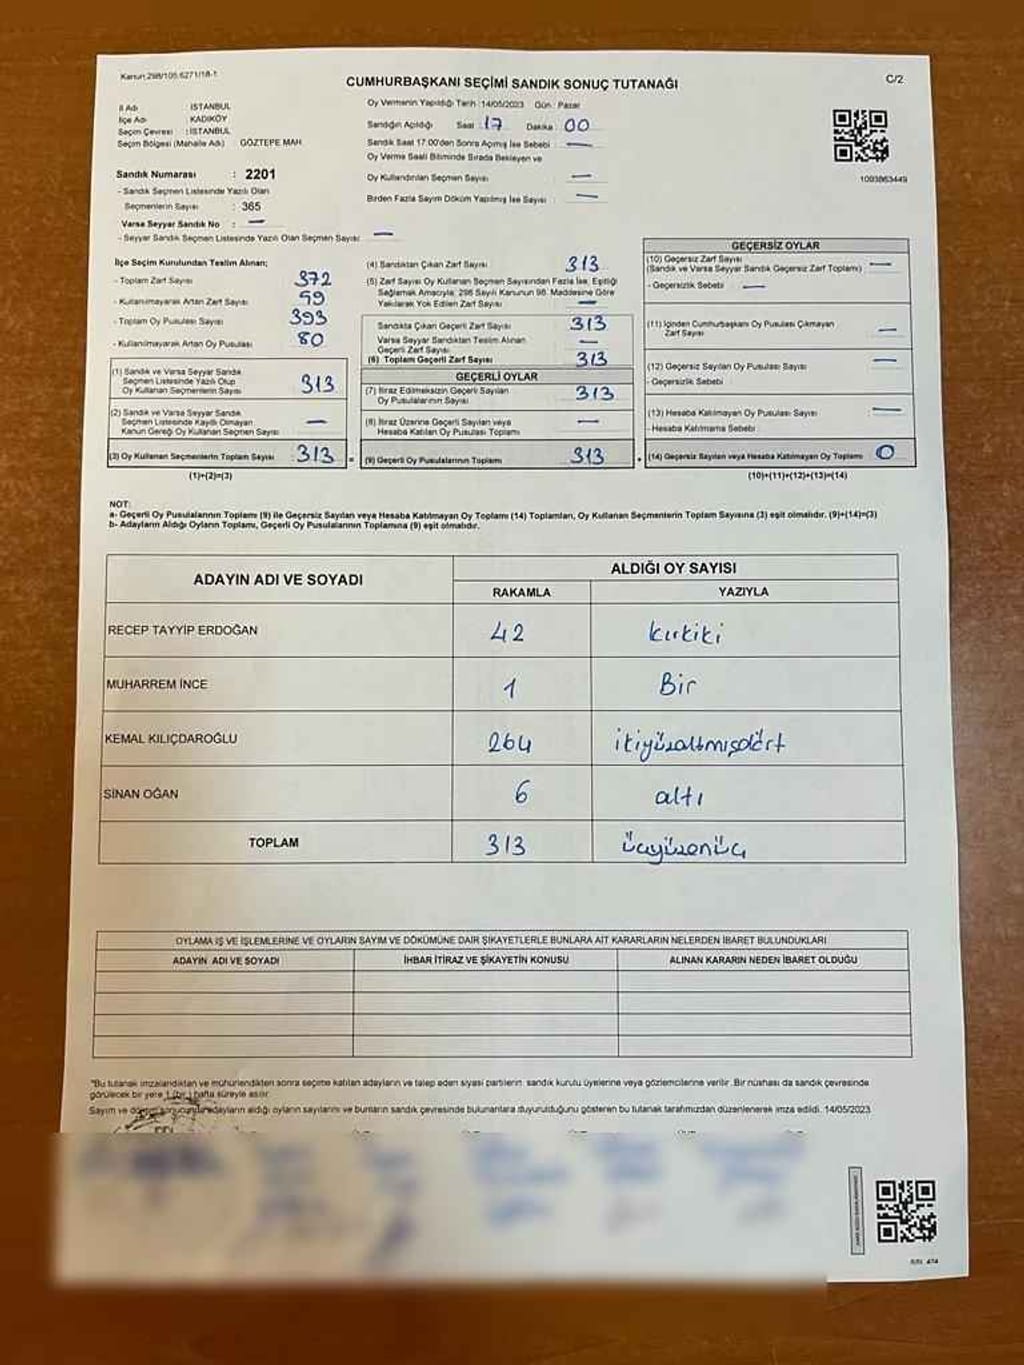 Kanun:298/105,6271/18-1
CUMHURBAŞKANI SEÇİMİ SANDIK SONUÇ TUTANAĞI
C/2
İl Adı : İSTANBUL
İlçe Adı : KADIKÖY
Seçim Çevresi : İSTANBUL
Seçim Bölgesi (Mahalle Adı) GÖZTEPE MAH.
Sandık Numarası : 2201
- Sandık Seçmen Listesinde Yazılı Olan
Seçmenlerin Sayısı : 365
Varsa Seyyar Sandık No : —
- Seyyar Sandık Seçmen Listesinde Yazılı Olan Seçmen Sayısı: —
Oy Vermenin Yapıldığı Tarih :14/05/2023 Gün : Pazar
Sandığın Açıldığı Saat : 17 Dakika : 00
Sandık Saat 17:00'den Sonra Açılmış İse Sebebi : —
Oy Verme Saati Bitiminde Sırada Bekleyen ve
Oy Kullandırılan Seçmen Sayısı : —
Birden Fazla Sayım Döküm Yapılmış İse Sayısı : —
1093863449
İlçe Seçim Kurulundan Teslim Alınan;
- Toplam Zarf Sayısı : 372
- Kullanılmayarak Artan Zarf Sayısı : 59
- Toplam Oy Pusulası Sayısı : 393
- Kullanılmayarak Artan Oy Pusulası : 80
(1) Sandık ve Varsa Seyyar Sandık
Seçmen Listesinde Yazılı Olup
Oy Kullanan Seçmenlerin Sayısı : 313
(2) Sandık ve Varsa Seyyar Sandık
Seçmen Listesinde Kayıtlı Olmayan
Kanun Gereği Oy Kullanan Seçmen Sayısı : —
(3) Oy Kullanan Seçmenlerin Toplam Sayısı : 313 =
(1)+(2)=(3)
(4) Sandıktan Çıkan Zarf Sayısı : 313
(5) Zarf Sayısı Oy Kullanan Seçmen Sayısından Fazla İse, Eşitliği
Sağlamak Amacıyla; 298 Sayılı Kanunun 98. Maddesine Göre
Yakılarak Yok Edilen Zarf Sayısı : —
Sandıkta Çıkan Geçerli Zarf Sayısı : 313
Varsa Seyyar Sandıktan Teslim Alınan
Geçerli Zarf Sayısı : —
(6) Toplam Geçerli Zarf Sayısı : 313
GEÇERLİ OYLAR
(7) İtiraz Edilmeksizin Geçerli Sayılan
Oy Pusulalarının Sayısı : 313
(8) İtiraz Üzerine Geçerli Sayılan veya
Hesaba Katılan Oy Pusulası Toplamı : —
(9) Geçerli Oy Pusulalarının Toplamı : 313 +
GEÇERSİZ OYLAR
(10) Geçersiz Zarf Sayısı :
(Sandık ve Varsa Seyyar Sandık Geçersiz Zarf Toplamı) —
- Geçersizlik Sebebi : —
(11) İçinden Cumhurbaşkanı Oy Pusulası Çıkmayan
Zarf Sayısı : —
(12) Geçersiz Sayılan Oy Pusulası Sayısı : —
- Geçersizlik Sebebi :
(13) Hesaba Katılmayan Oy Pusulası Sayısı : —
- Hesaba Katılmama Sebebi :
(14) Geçersiz Sayılan veya Hesaba Katılmayan Oy Toplamı : 0
(10)+(11)+(12)+(13)=(14)
NOT:
a- Geçerli Oy Pusulalarının Toplamı (9) ile Geçersiz Sayılan veya Hesaba Katılmayan Oy Toplamı (14) Toplamları, Oy Kullanan Seçmenlerin Toplam Sayısına (3) eşit olmalıdır. (9)+(14)=(3)
b- Adayların Aldığı Oyların Toplamı, Geçerli Oy Pusulalarının Toplamına (9) eşit olmalıdır.
ADAYIN ADI VE SOYADI
ALDIĞI OY SAYISI
RAKAMLA YAZIYLA
RECEP TAYYİP ERDOĞAN 42 kırkiki
MUHARREM İNCE 1 Bir
KEMAL KILIÇDAROĞLU 264 ikiyüzaltmışdört
SİNAN OĞAN 6 altı
TOPLAM 313 üçyüzonüç
OYLAMA İŞ VE İŞLEMLERİNE VE OYLARIN SAYIM VE DÖKÜMÜNE DAİR ŞİKAYETLERLE BUNLARA AİT KARARLARIN NELERDEN İBARET BULUNDUKLARI
ADAYIN ADI VE SOYADI İHBAR İTİRAZ VE ŞİKAYETİN KONUSU ALINAN KARARIN NEDEN İBARET OLDUĞU
"Bu tutanak imzalandıktan ve mühürlendikten sonra seçime katılan adayların ve talep eden siyasi partilerin sandık kurulu üyelerine veya gözlemcilerine verilir. Bir nüshası da sandık çevresinde
görülecek bir yere 1 (bir) hafta süreyle asılır.
Sayım ve döküm sonucunda adayların aldığı oyların sayılarını ve bunların sandık çevresinde bulunanlara duyurulduğunu gösteren bu tutanak tarafımızdan düzenlenerek imza edildi. 14/05/2023